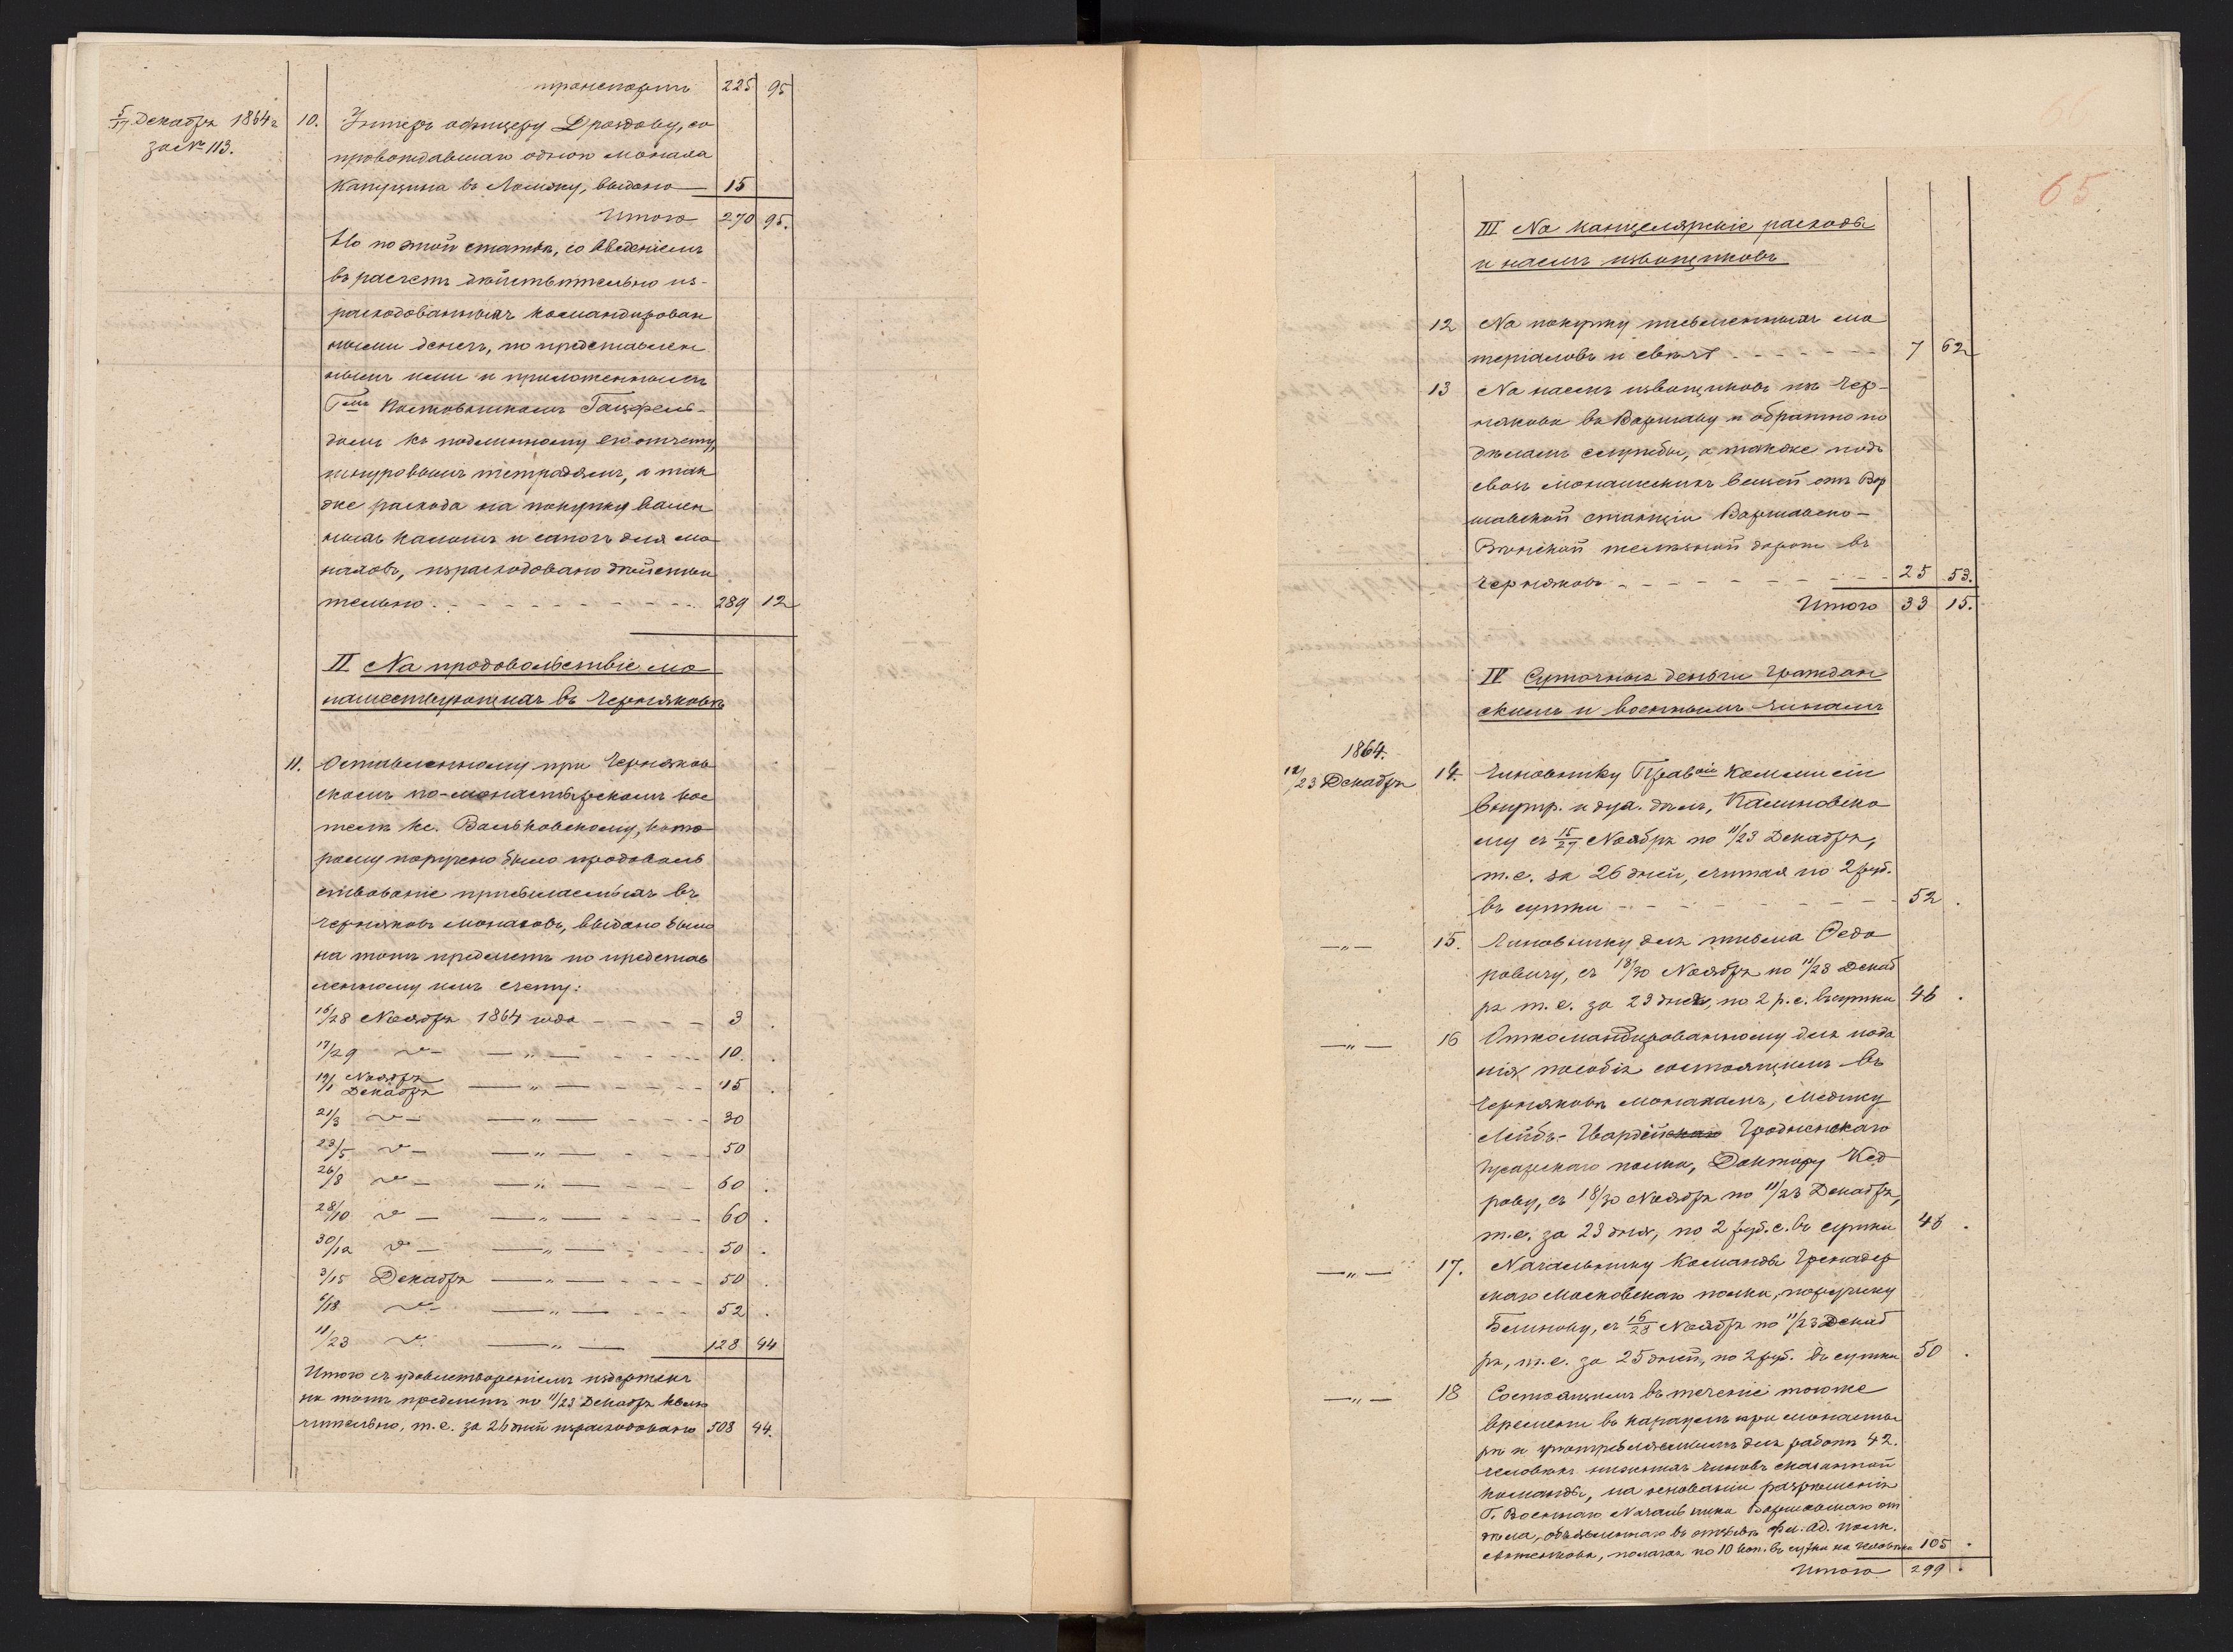 транспортъ 225 95
5/17 Декабря 1864 г. 10. Унтеръ офицеру Дроздову, со
за № 113. провождавшаго одного монаха
Капуцина въ Ломжу, выдано 15
Итого 270 95.
Но по этой статьѣ, со введеніемъ
въ расчетъ дѣйствительно из-
расходованныхъ командирован
ными денегъ, по представлен
нымъ ими и приложеннымъ
Г-мъ Полковникомъ Гацфель-
домъ къ подлинному его отчету,
шнуровымъ тетрадямъ, а так
же расхода на покупку вален
ныхъ калошъ и сапогъ для мо
наховъ, израсходовано дѣйстви
тельно 289 12
II На продовольствіе мо
нашествующихъ въ Черняковѣ
11. Оставленному при Черняков
скомъ по-монастырскомъ кос
телѣ кс. Вальковскому, кото
рому поручено было продоволь
ствованіе присылаемыхъ въ
Черняковъ монаховъ, выдано было
на тотъ предметъ по представ
ленному имъ счету:
16/28 Ноября 1864 года 3 .
17/29 — " — 10. .
19/1 Ноября/Декабря — " — 15 .
21/3 — " — 30
23/5 — " — 50
26/8 — " — 60 .
28/10 — " — 60 .
30/12 — " — 50 .
3/15 Декабря — " — 50 .
6/18 — " — 52 .
11/23 — " — 128 44
Итого съ удовлетвореніемъ издержекъ
на тотъ предметъ по 11/23 Декабря вклю
чительно, т.е. за 26 дней израсходовано 508 44.
66
65
III На канцелярскіе расходы
и наемъ извощиковъ
12 На покупку письменныхъ ма
теріаловъ и свѣчъ 7 62
13 На наемъ извощиковъ изъ Чер-
някова въ Варшаву и обратно по
дѣламъ службы, а также подъ
свозъ монашескихъ вещей отъ Вар
шавской станціи Варшавско-
Вѣнской желѣзной дороги въ
Черняковъ 25 53.
Итого 33 15.
IV Суточныя деньги Граждан
скимъ и военнымъ чинамъ
1864.
11/23 Декабря 14. Чиновнику Прав-ой Коммисіи
внутр. и дух. дѣлъ, Калиновско
му съ 15/27 Ноября по 11/23 Декабря,
т.е. за 26 дней, считая по 2 руб.
въ сутки 52 .
— " — 15. Чиновнику для письма Ѳедо
ровичу, съ 18/30 Ноября по 11/23 Декаб
ря т.е. за 23 дня, по 2 р. с. въ сутки 46 .
— " — 16 Откомандированному для пода
нія пособія состоящимъ въ
Черняковѣ монахамъ, Медику
Лейбъ-Гвардейскаго Гродненскаго
Гусарскаго полка, Доктору Кед
рову, съ 18/30 Ноября по 11/23 Декабря,
т.е. за 23 дня, по 2 руб. с. въ сутки 46 .
— " — 17. Начальнику Команды Гренадер
скаго Московскаго полка, поручику
Блинову, съ 16/28 Ноября по 11/23 Декаб
ря, т.е. за 25 дней, по 2 руб. въ сутки 50 .
— " — 18 Состоящимъ въ теченіе того же
времени въ караулѣ при монасты
рѣ и употребляемымъ для работъ 42.
человѣкъ нижнихъ чиновъ сказанной
команды, на основаніи разрѣшенія
Г. Военнаго Начальника Варшавскаго от
дѣла, объявленнаго въ отзывѣ фл. ад. полк.
полагая по 10 коп. въ сутки на человѣка 105 .
Итого 299 .